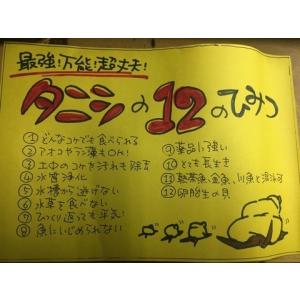 最強!万能!超丈夫!
タニシの12のひみつ
①どんなコケでも食べられる
②アオコやラン藻もOK!
③土中のコケを汚れも除去
④水質浄化
⑤水槽から逃げない
⑥水草を食べない
⑦ひっくり返っても平気!
⑧魚にいじめられない
⑨薬品に強い
⑩とても長生き
⑪熱帯魚、金魚、川魚と混泳可
⑫卵胎生の貝